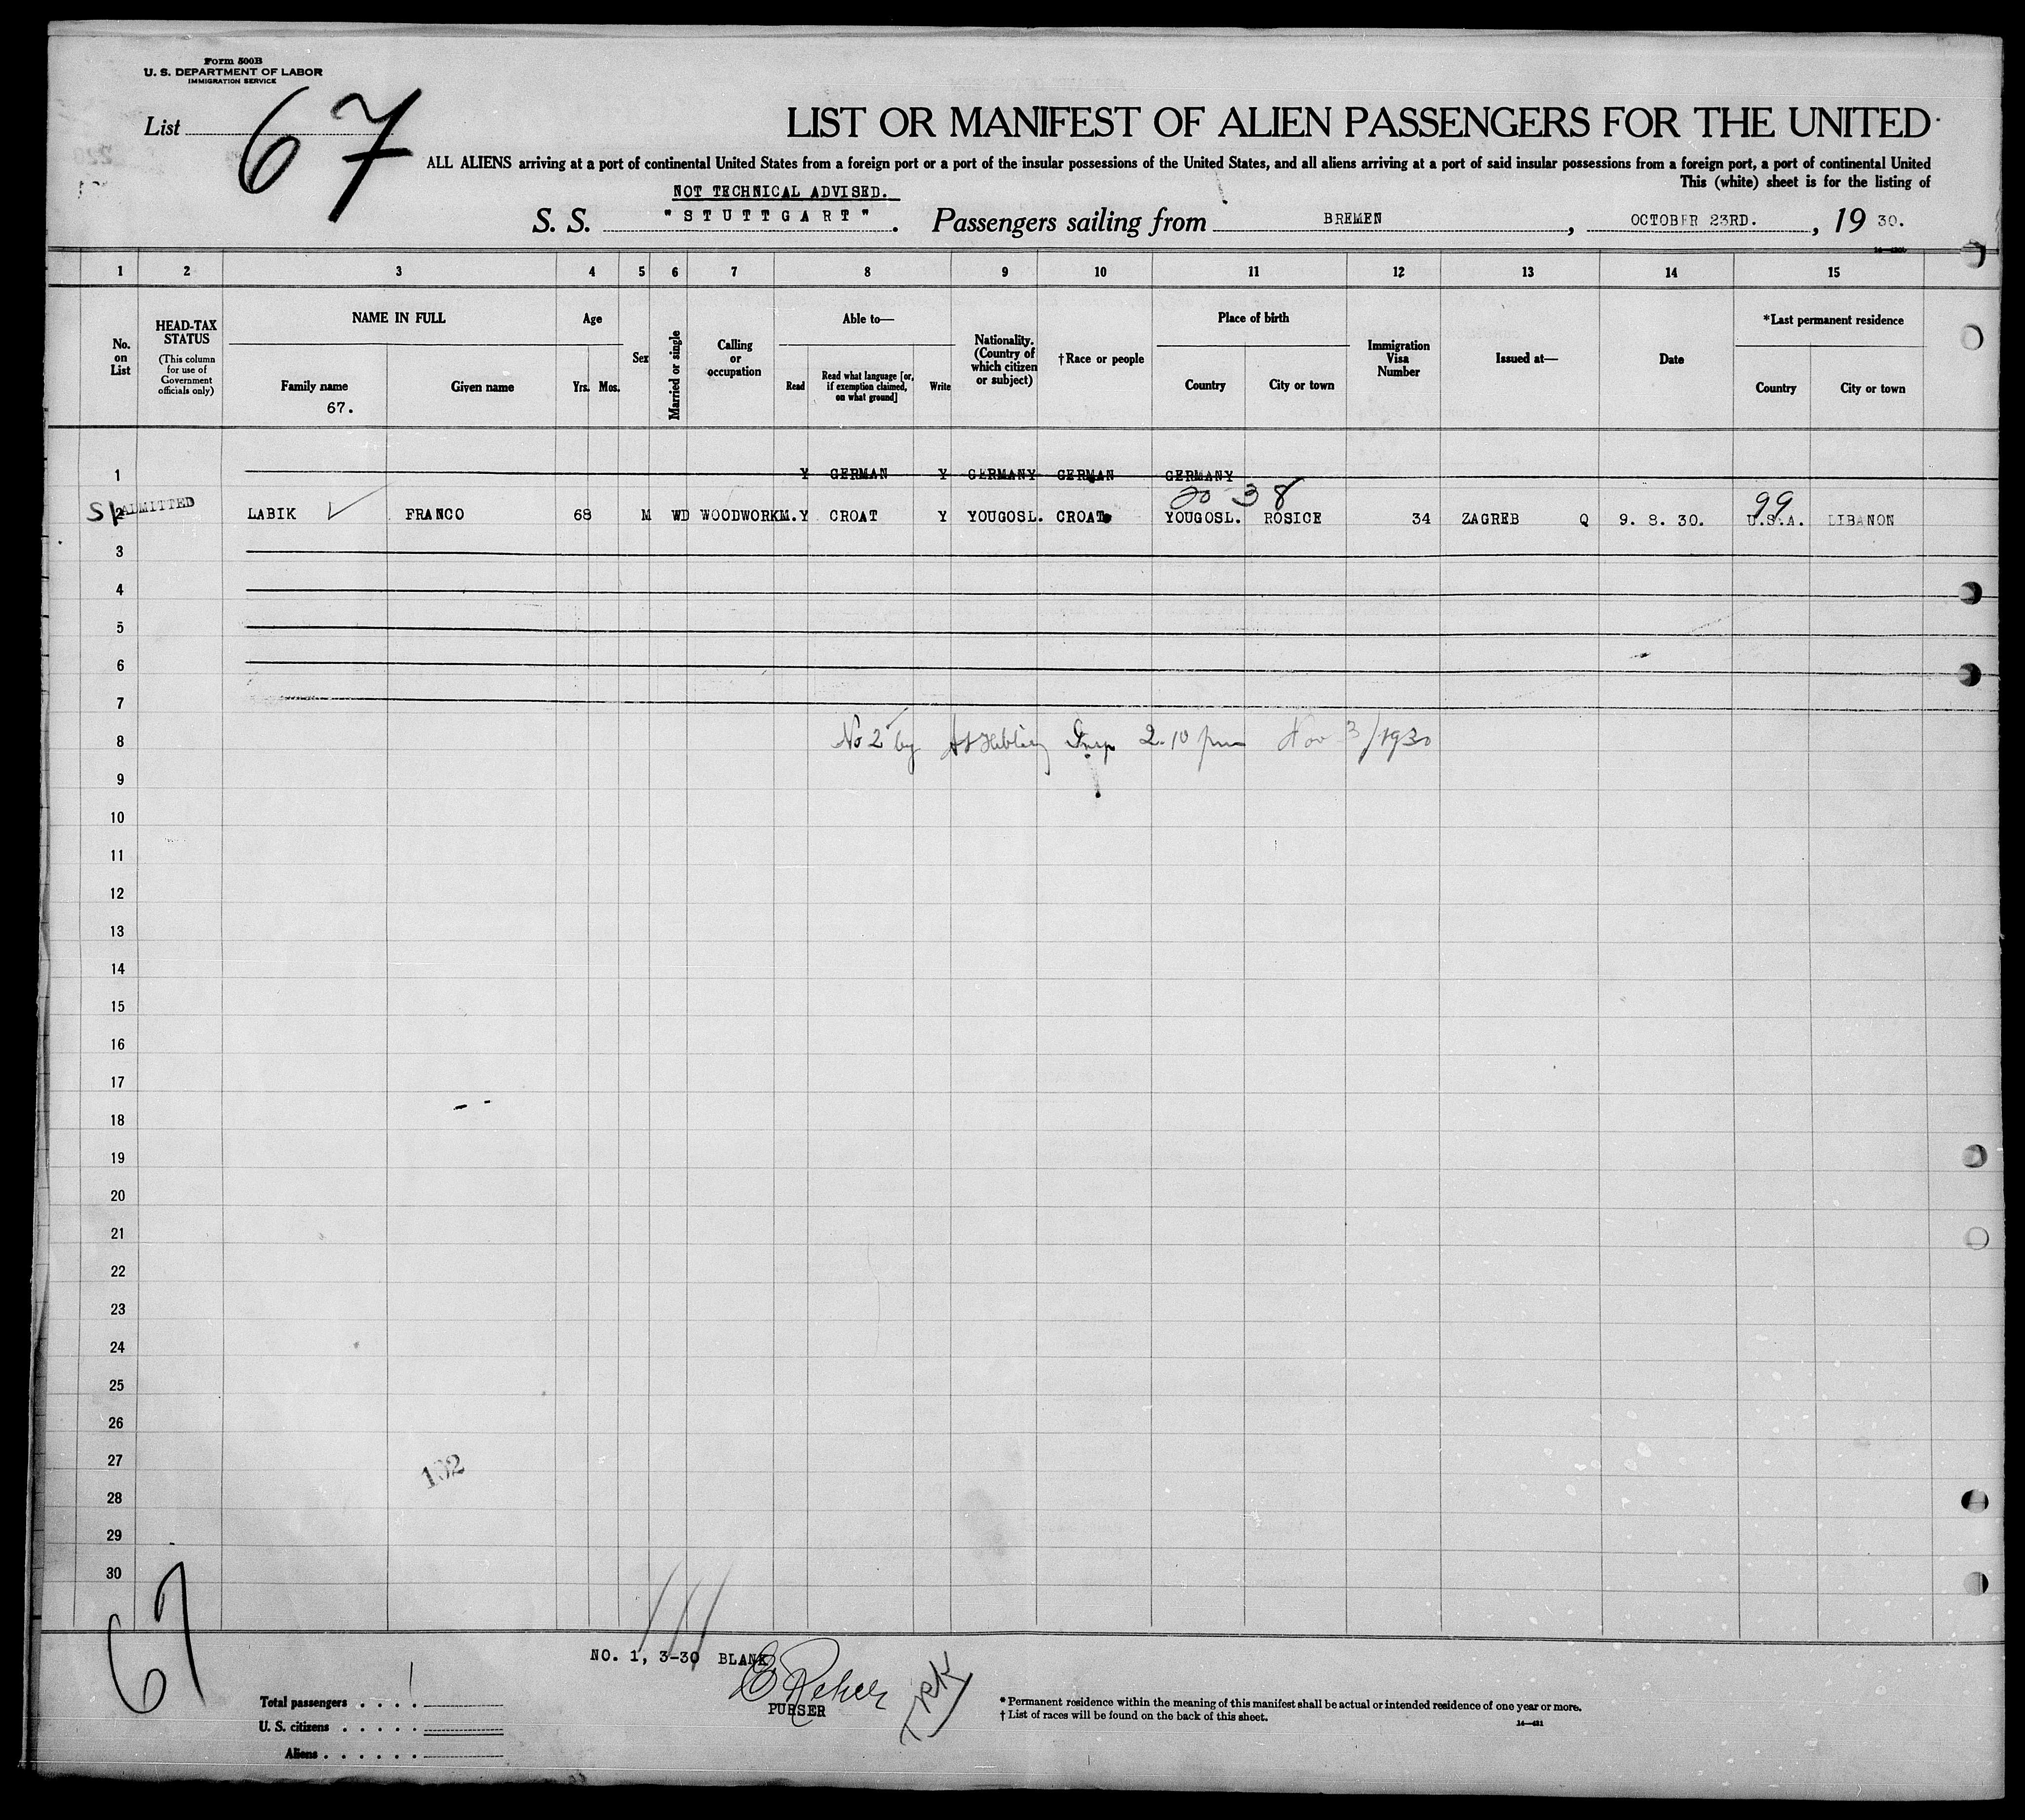 Form 500B
U. S. DEPARTMENT OF LABOR
IMMIGRATION SERVICE
List 67
LIST OR MANIFEST OF ALIEN PASSENGERS FOR THE UNITED
ALL ALIENS arriving at a port of continental United States from a foreign port or a port of the insular possessions of the United States, and all aliens arriving at a port of said insular possessions from a foreign port, a port of continental United
This (white) sheet is for the listing of
NOT TECHNICAL ADVISED.
S. S. "STUTTGART". Passengers sailing from BREMEN, OCTOBER 23RD., 19 30.
1 2 3 4 5 6 7 8 9 10 11 12 13 14 15
No. on List
HEAD-TAX STATUS
(This column for use of Government officials only)
NAME IN FULL
Family name
67.
Given name
Age
Yrs. Mos.
Sex
Married or single
Calling or occupation
Able to—
Read
Read what language [or, if exemption claimed, on what ground]
Write
Nationality. (Country of which citizen or subject)
†Race or people
Place of birth
Country
City or town
Immigration Visa Number
Issued at—
Date
*Last permanent residence
Country
City or town
1 Y GERMAN Y GERMANY GERMAN GERMANY
20 38 99
SI 2 ADMITTED LABIK FRANCO 68 M WD WOODWORKM. Y CROAT Y YOUGOSL. CROAT YOUGOSL. ROSICE 34 ZAGREB Q 9. 8. 30. U.S.A. LIBANON
3
4
5
6
7
8 No 2 by Insp 2.10 pm Nov 3/1930
9
10
11
12
13
14
15
16
17
18
19
20
21
22
23
24
25
26
27
132
28
29
30
67
NO. 1, 3-30 BLANK
PURSER
Total passengers . . . . 1
U. S. citizens . . . . .
Aliens . . . . . .
* Permanent residence within the meaning of this manifest shall be actual or intended residence of one year or more.
† List of races will be found on the back of this sheet.